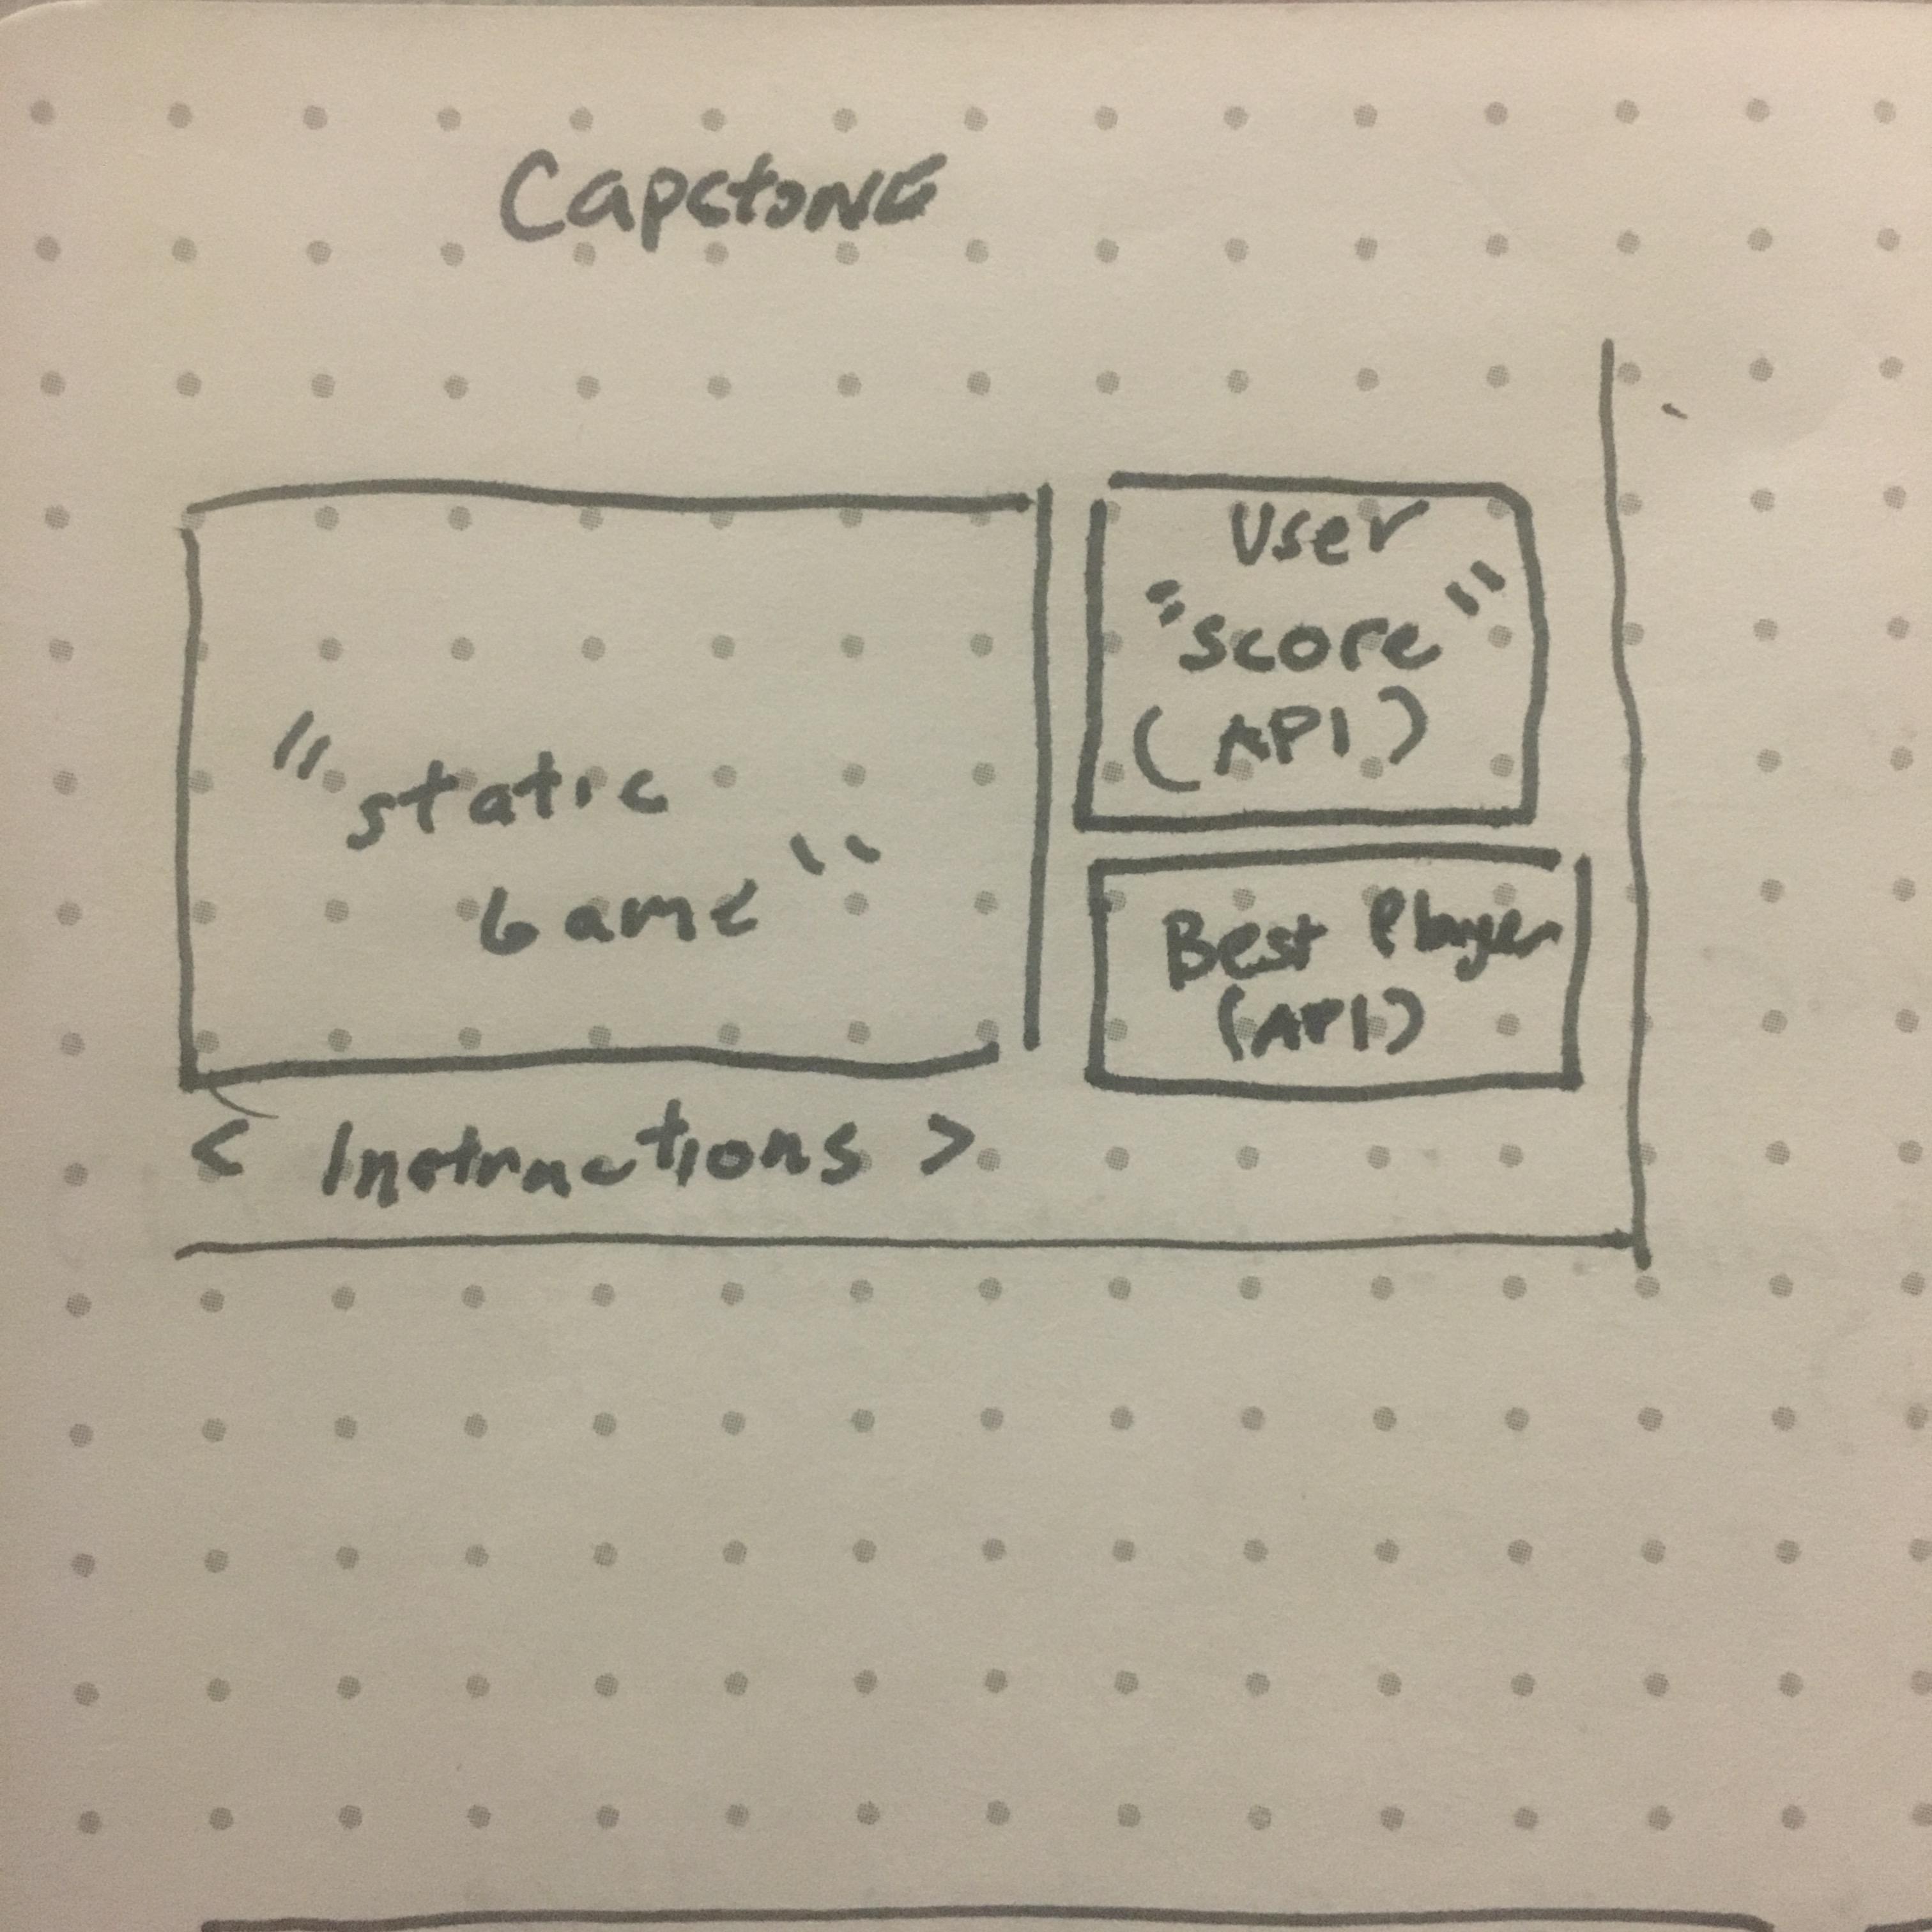 Capstone
"static
Game"
User
"score"
(API)
Best Player
(API)
< Instructions >